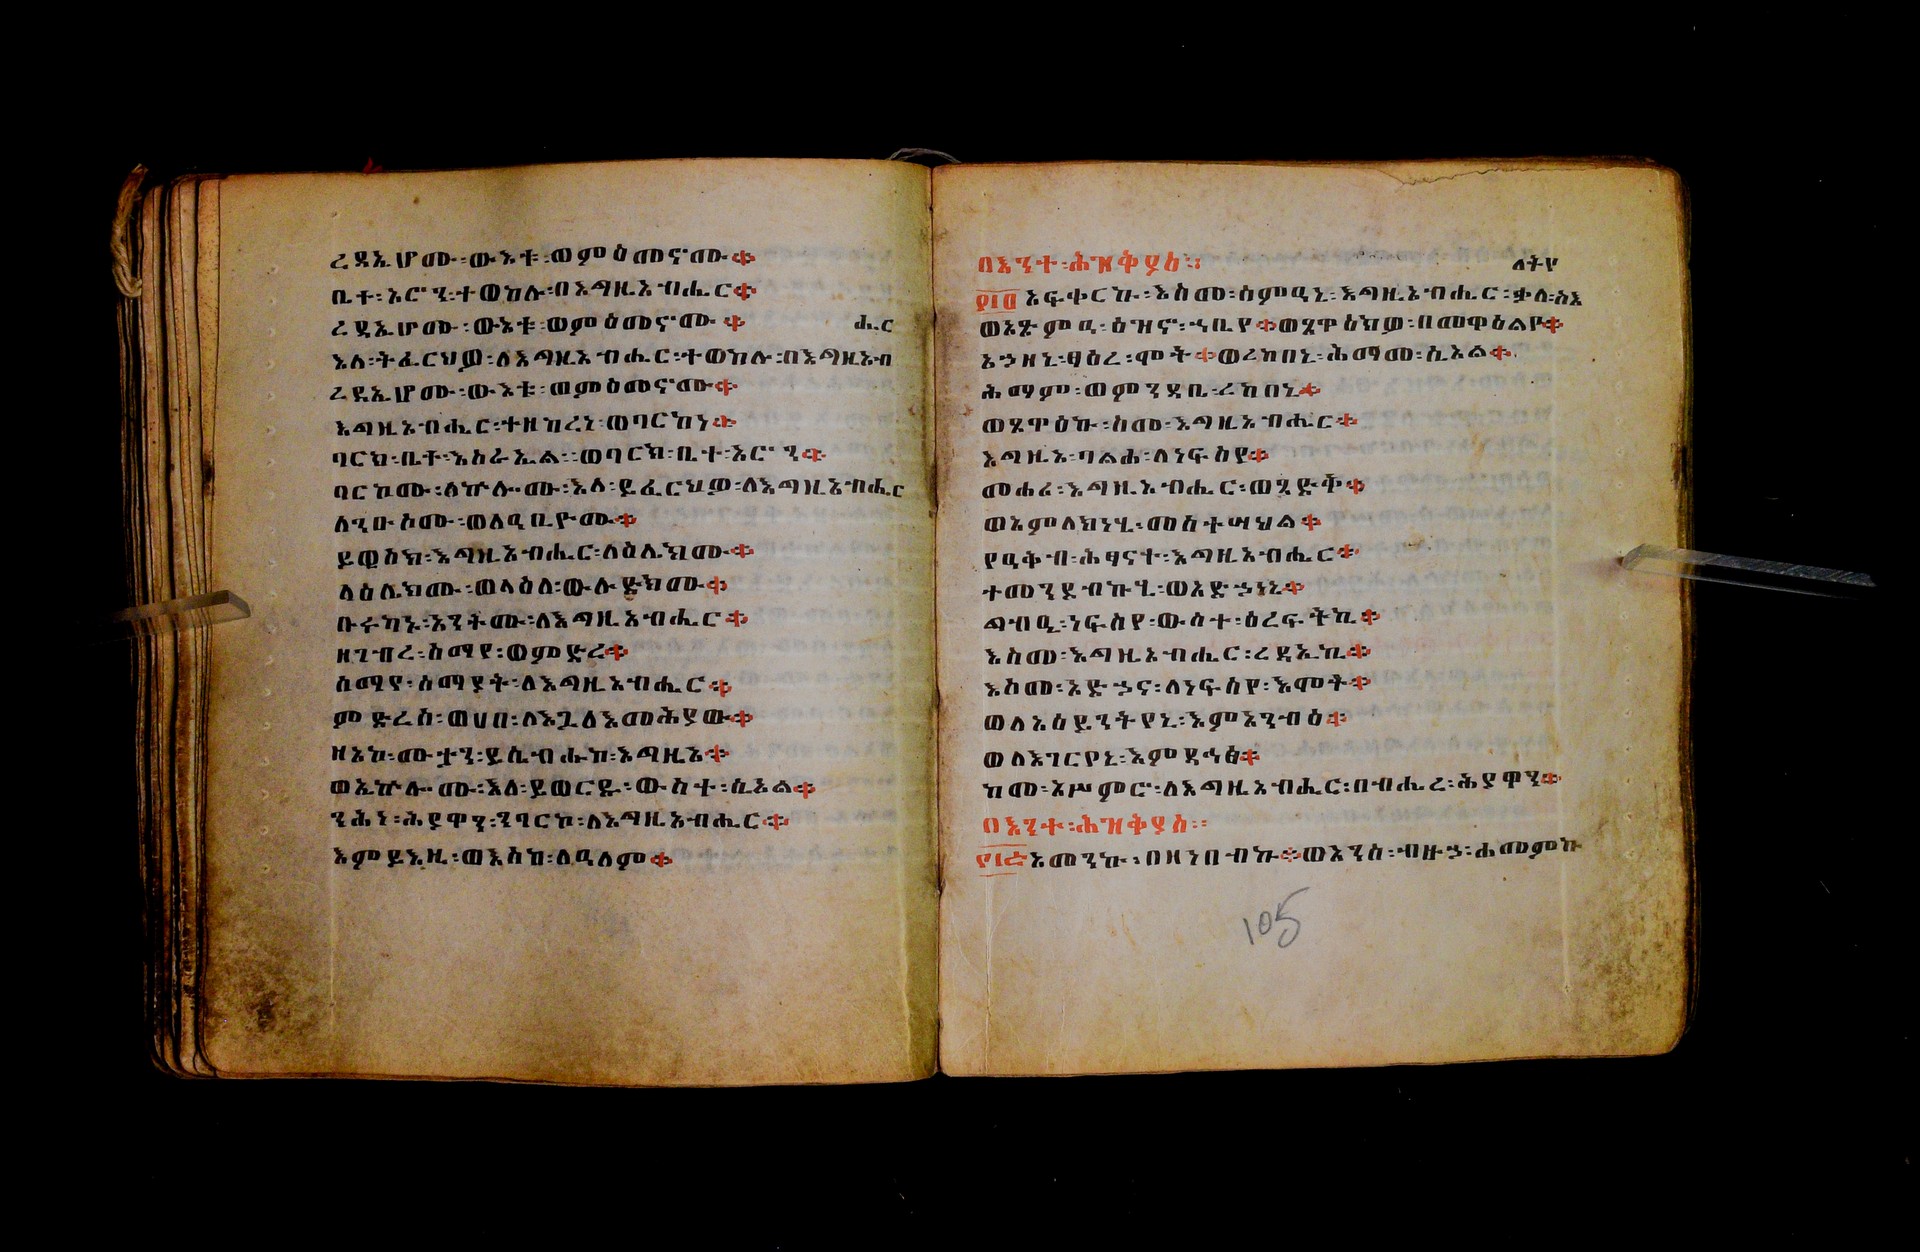 ረዳኢሆሙ፡ውእቱ፡ወምዕመኖሙ።
ቤተ፡አሮን፡ተወከሉ፡በእግዚአብሔር።
ረዳኢሆሙ፡ውእቱ፡ወምዕመኖሙ። ሔር
እለ፡ትፈርህዎ፡ለእግዚአብሔር፡ተወከሉ፡በእግዚአብ
ረዳኢሆሙ፡ውእቱ፡ወምዕመኖሙ።
እግዚአብሔር፡ተዘከረነ፡ወባርከነ።
ባርከ፡ቤተ፡እስራኤል፡ወባርከ፡ቤተ፡አሮን።
ባርኮሙ፡ለኵሎሙ፡እለ፡ይፈርህዎ፡ለእግዚአብሔር
ለንኡሶሙ፡ወለዓቢዮሙ።
ይወስክ፡እግዚአብሔር፡ላዕሌክሙ።
ላዕሌክሙ፡ወላዕለ፡ውሉድክሙ።
ቡሩካኑ፡አንትሙ፡ለእግዚአብሔር።
ዘገብረ፡ሰማየ፡ወምድረ።
ሰማየ፡ሰማያት፡ለእግዚአብሔር።
ምድረሰ፡ወሀበ፡ለእጓለእመሕያው።
ዘአኮ፡ሙታን፡ይሴብሑከ፡እግዚኦ።
ወኢኵሎሙ፡እለ፡ይወርዱ፡ውስተ፡ሲኦል።
ንሕነ፡ሕያዋን፡ንባርኮ፡ለእግዚአብሔር።
እምይእዜ፡ወእስከ፡ለዓለም።
በእንተ፡ሕዝቅያስ፡ ለትየ
፻፲፬ አፍቀርኩ፡እስመ፡ሰምዓኒ፡እግዚአብሔር፡ቃለ፡ስእ
ወአጽምዓ፡ዕዝኖ፡ኀቤየ።ወጸዋዕክዎ፡በመዋዕልየ።
አኃዘኒ፡ፃዕረ፡ሞት።ወረከበኒ፡ሕማመ፡ሲኦል።
ሕማም፡ወምንዳቤ፡ረከበኒ።
ወጸዋዕኩ፡ስመ፡እግዚአብሔር።
እግዚኦ፡ባልሐ፡ለነፍስየ።
መሐሪ፡እግዚአብሔር፡ወጻድቅ።
ወአምላክነሂ፡መስተሣህል።
የዓቅብ፡ሕፃናተ፡እግዚአብሔር።
ተመንደብኩሂ፡ወአድኃነኒ።
ግብዒ፡ነፍስየ፡ውስተ፡ዕረፍትኪ።
እስመ፡እግዚአብሔር፡ረዳኢኪ።
እስመ፡አድኃና፡ለነፍስየ፡እሞት።
ወለአዕይንትየኒ፡እምአንብዕ።
ወለእገርየኒ፡እምዳኅፅ።
ከመ፡አሥምሮ፡ለእግዚአብሔር፡በብሔረ፡ሕያዋን።
በእንተ፡ሕዝቅያስ፡
፻፲፭ አመንኩ፡በዘነበብኩ።ወአንሰ፡ብዙኃ፡ሐመምኩ
105